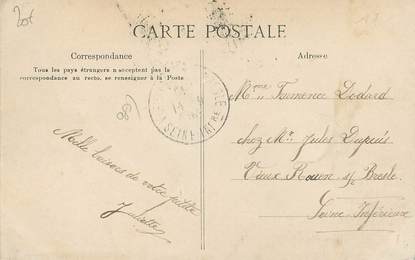 20f
CARTE POSTALE
Correspondance
Tous les pays étrangers n'acceptent pas la
correspondance au recto, se renseigner à la Poste
Adresse
SEINE INFRE
Mme Dodard
chez Mr Jules Dupuis
Vieux Rouen s/ Bresle
Seine Inférieure
Mille baisers de votre petite
Juliette